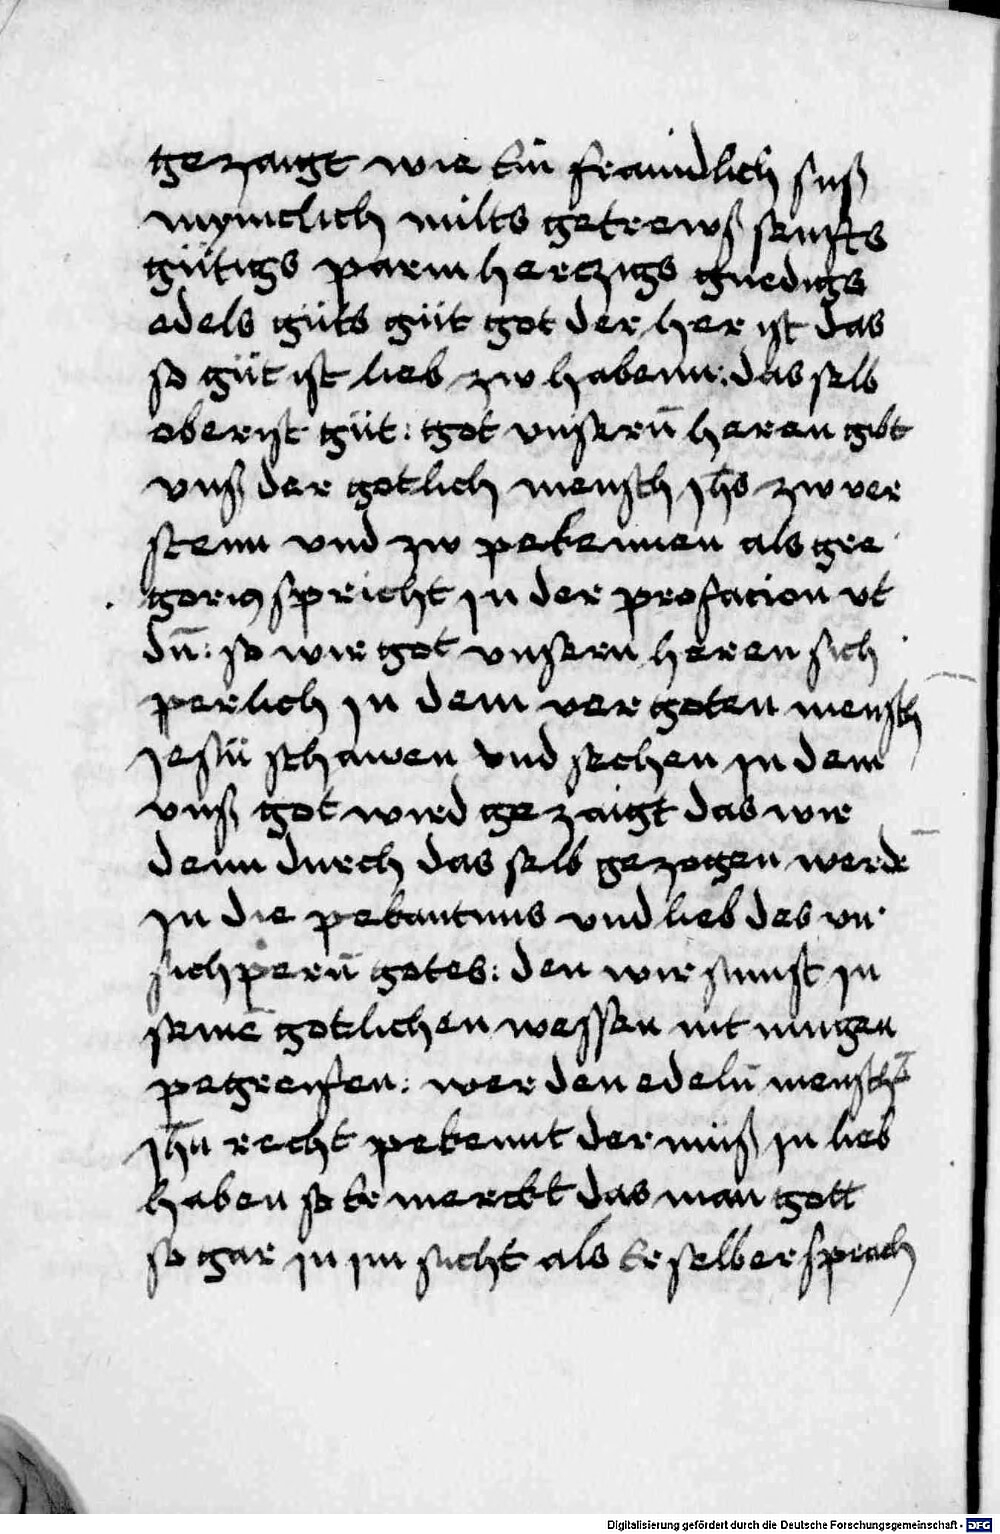 gezaigt wie Ein fraindlich suß
mynicklich milts getrewß senfts
gütigs parmherczigs gnedigs
edels güts güt got der her ist das
so güt ist lieb zw habenn: das selb
oberist güt: got vnsern̄ heren gibt
vnß der gotlich mensch jhs zw ver
stenn vnd zw pekennen als gre
gorius spricht jn der prefacion vt
dn̄: so wir got vnsern heren sich
perlich jn dem vergoten mensch
jesü schawen vnd sechen jn dem
vnß got wird gezaigt das wir
denn durch das selb gezogen werde
jn die pekantnus vnd lieb des vn
sichpern̄ gotes: den wir sunst jn
seinē gotlichen wessen nit mugen
pegreifen: wer den edeln̄ menschē
jhn recht pekennt der müß jn lieb
haben so Er merckt das man gott
so gar jn im sicht als Er selber sprach
Digitalisierung gefördert durch die Deutsche Forschungsgemeinschaft - DFG